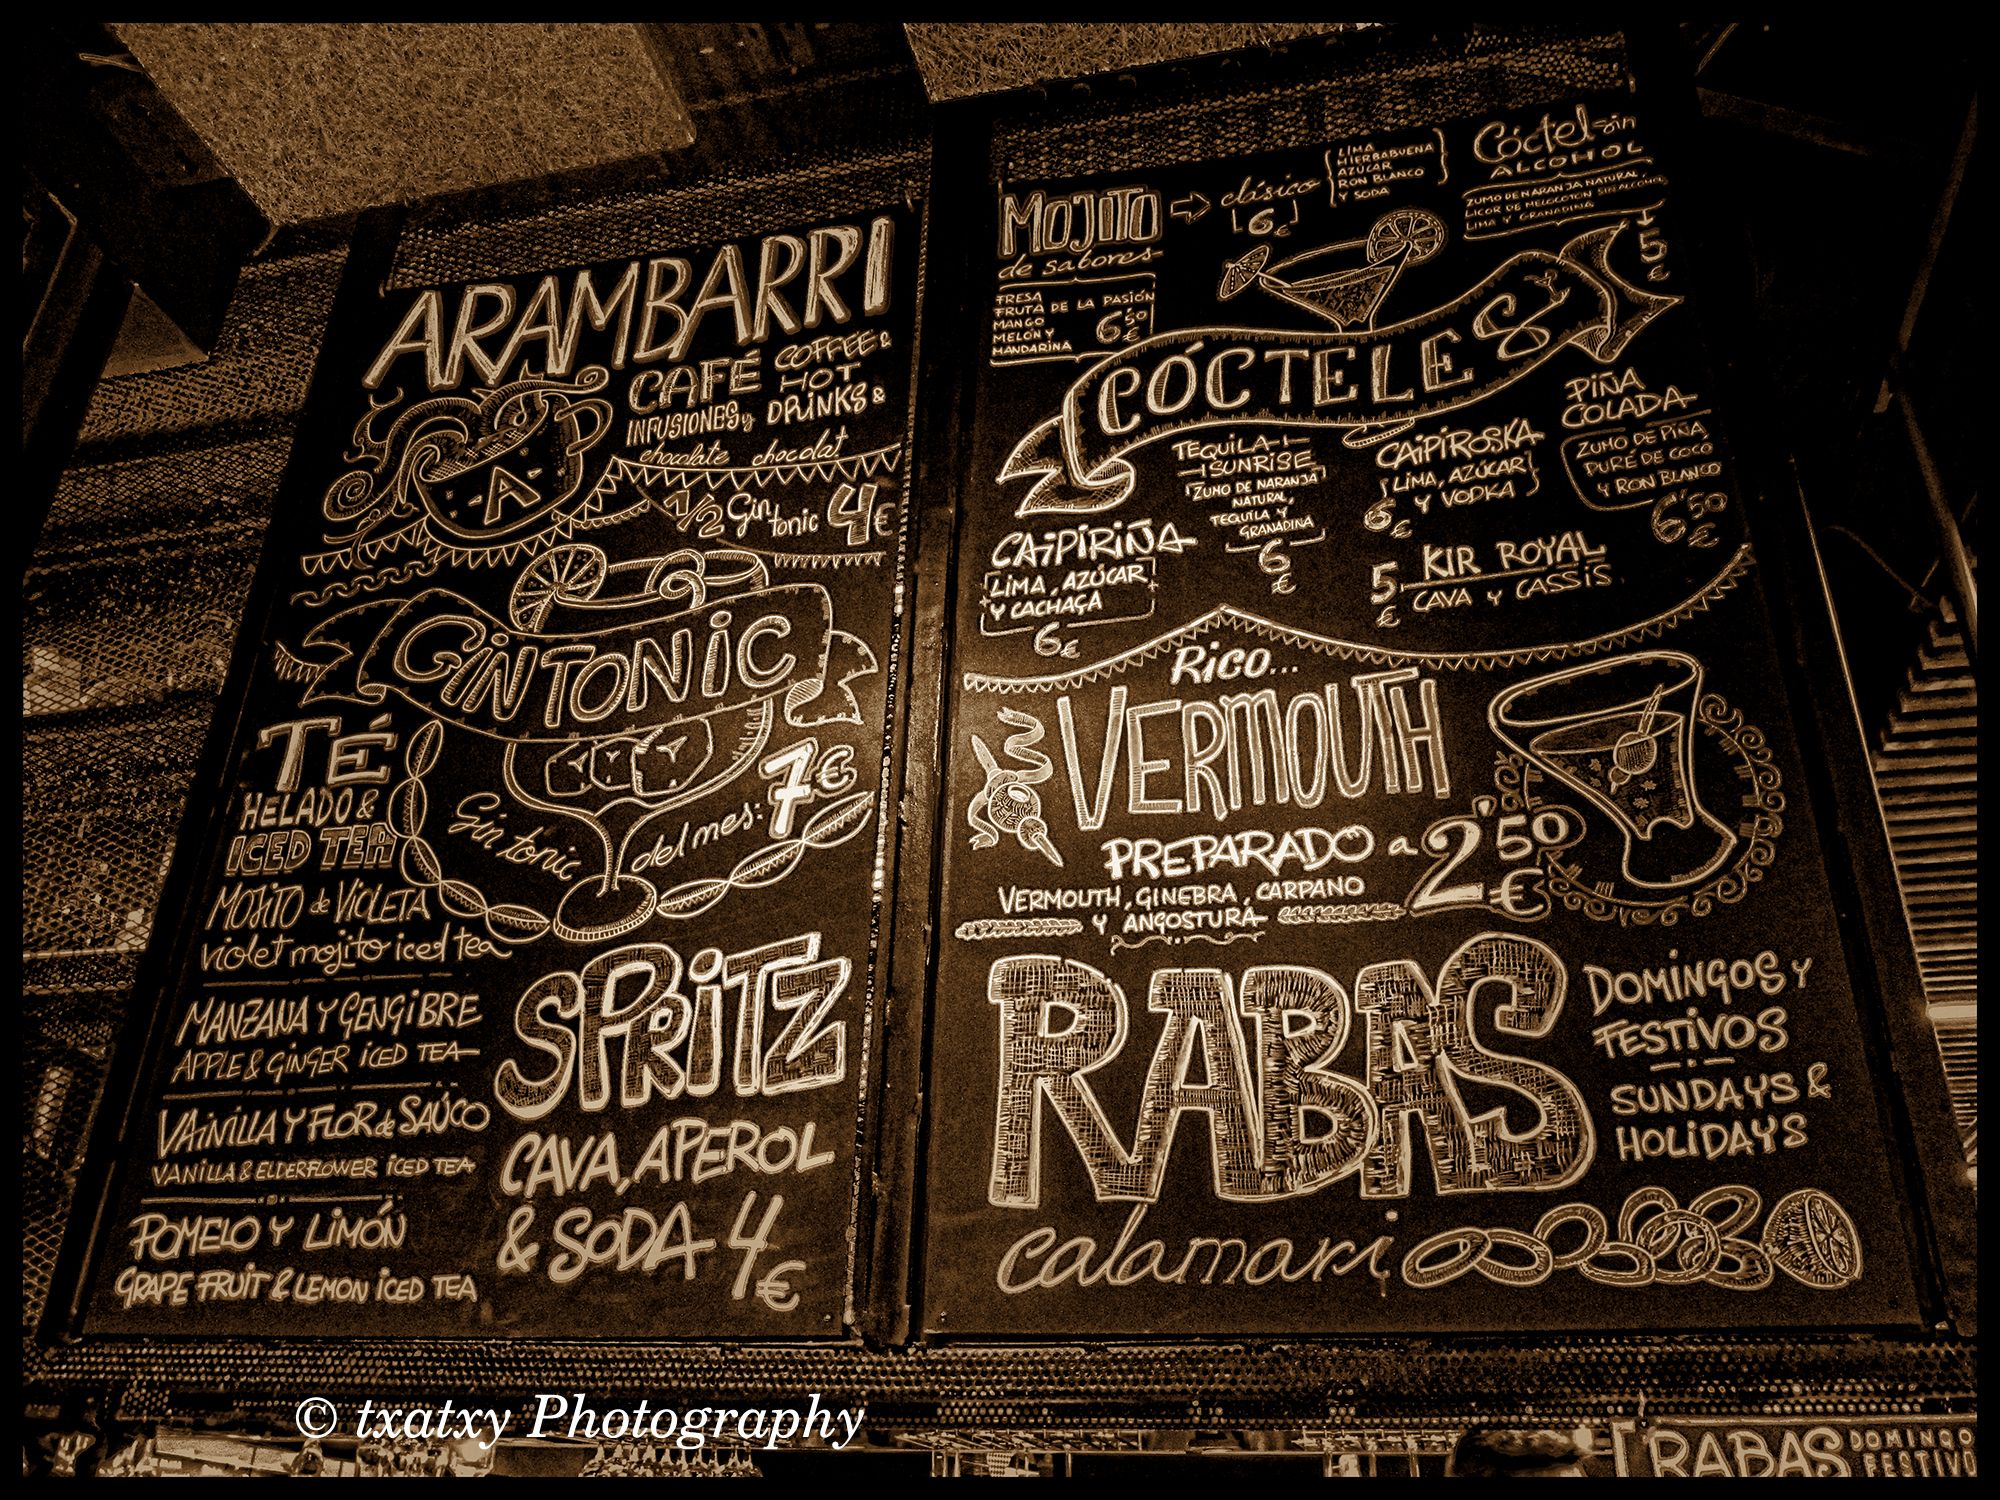 ARAMBARRI
CAFÉ
INFUSIONES y
COFFEE &
HOT
DRINKS &
chocolate chocolat
-A-
1/2 Gin tonic 4€
GINTONIC
Gin tonic del mes: 7€
TÉ
HELADO &
ICED TEA
MOJITO de VIOLETA
violet mojito iced tea
MANZANA Y GENGIBRE
APPLE & GINGER ICED TEA
VAINILLA Y FLOR de SAÚCO
VANILLA & ELDERFLOWER ICED TEA
POMELO Y LIMÓN
GRAPE FRUIT & LEMON ICED TEA
SPRITZ
CAVA, APEROL
& SODA 4€
MOJITO → clásico
6€
LIMA
HIERBABUENA
AZUCAR
RON BLANCO
Y SODA
de sabores
FRESA
FRUTA DE LA PASIÓN
MANGO
MELÓN Y
MANDARINA
6'50€
Cóctel sin
ALCOHOL
ZUMO DE NARANJA NATURAL,
LICOR DE MELOCOTON SIN ALCOHOL
LIMA Y GRANADINA
5€
CÓCTELES
CAIPIRIÑA
LIMA, AZÚCAR
Y CACHAÇA
6€
TEQUILA
SUNRISE
ZUMO DE NARANJA
NATURAL,
TEQUILA Y
GRANADINA
6€
CAIPIROSKA
LIMA, AZÚCAR
Y VODKA
6€
PIÑA
COLADA
ZUMO DE PIÑA,
PURÉ DE COCO
Y RON BLANCO
6'50€
5€ KIR ROYAL
CAVA Y CASSIS
RICO...
VERMOUTH
PREPARADO a 2'50€
VERMOUTH, GINEBRA, CARPANO
Y ANGOSTURA
RABAS
calamari
DOMINGOS Y
FESTIVOS
SUNDAYS &
HOLIDAYS
© txatxy Photography
RABAS
DOMINGO
FESTIVO